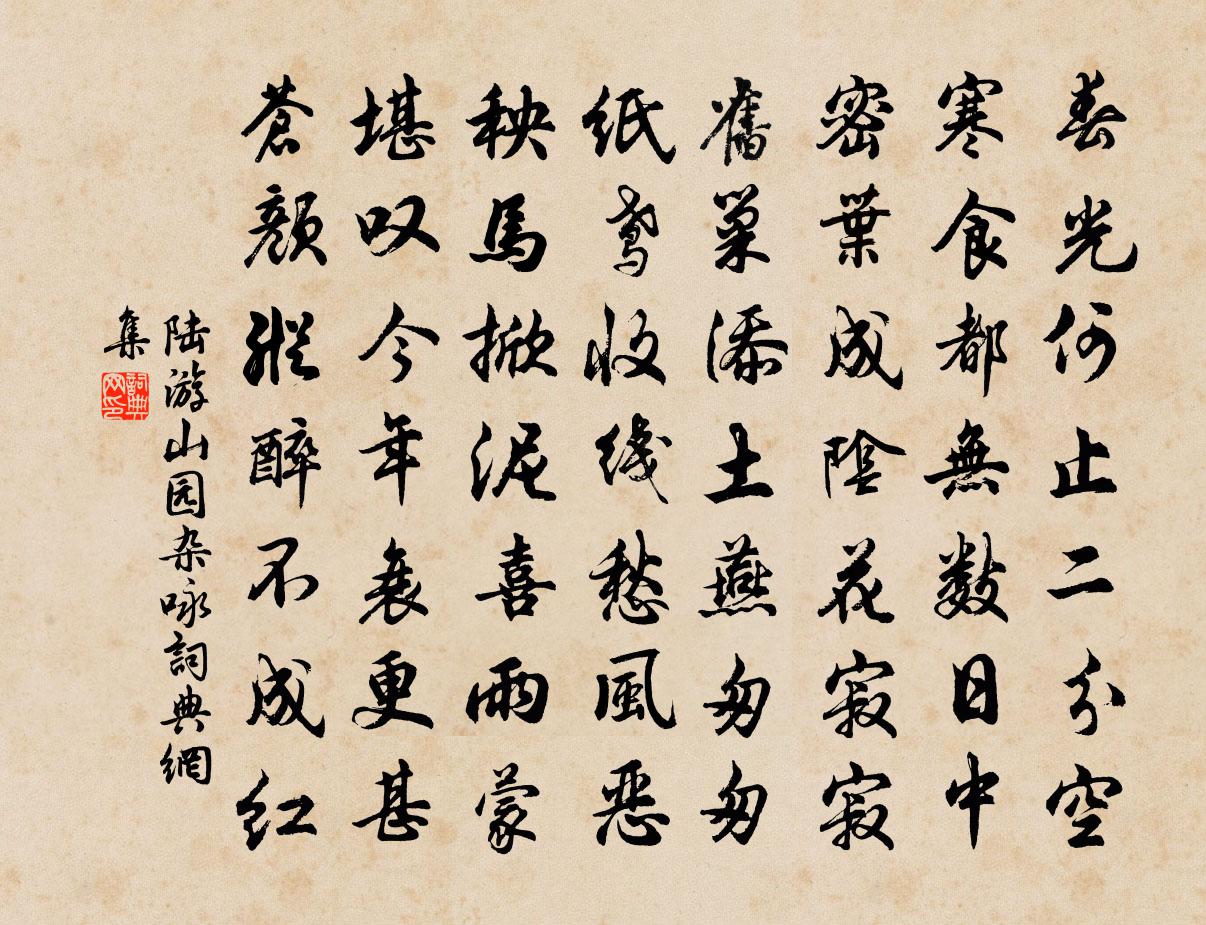 春光何止二分空
寒食都無數日中
密葉成陰花寂寂
舊巢添土燕匆匆
紙鳶收线愁風惡
秧馬掀泥喜雨蒙
堪叹今年衰更甚
蒼顏縱醉不成红
陆游山园杂咏詞典網
集
詞典网印